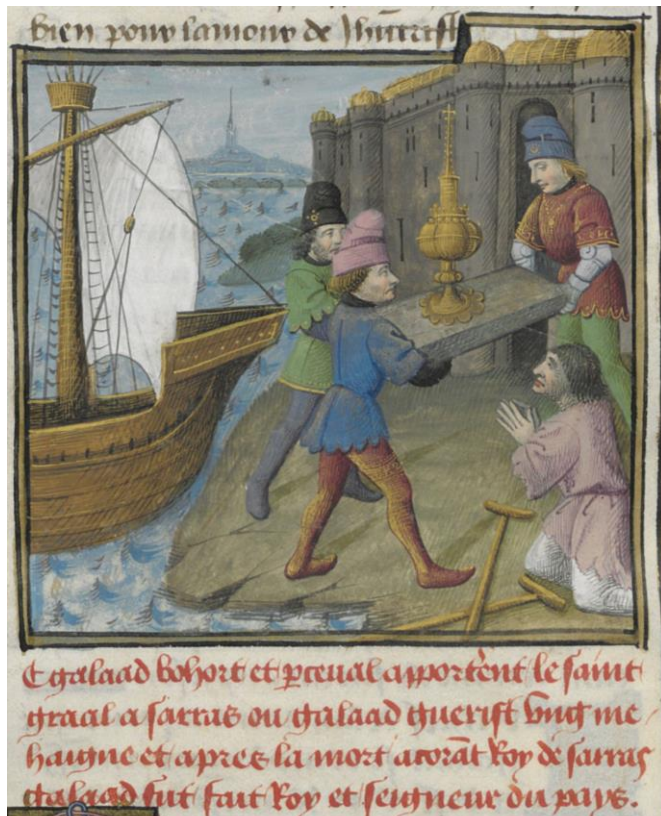 bien pour lamour de Jhucrist
Cgalaad bohort et pceual apporterent le saint
graal a sarras ou galaad guerist vng me
haigne et apres la mort acorãt Roy de sarras
galaad fut fait Roy et seigneur du pays.